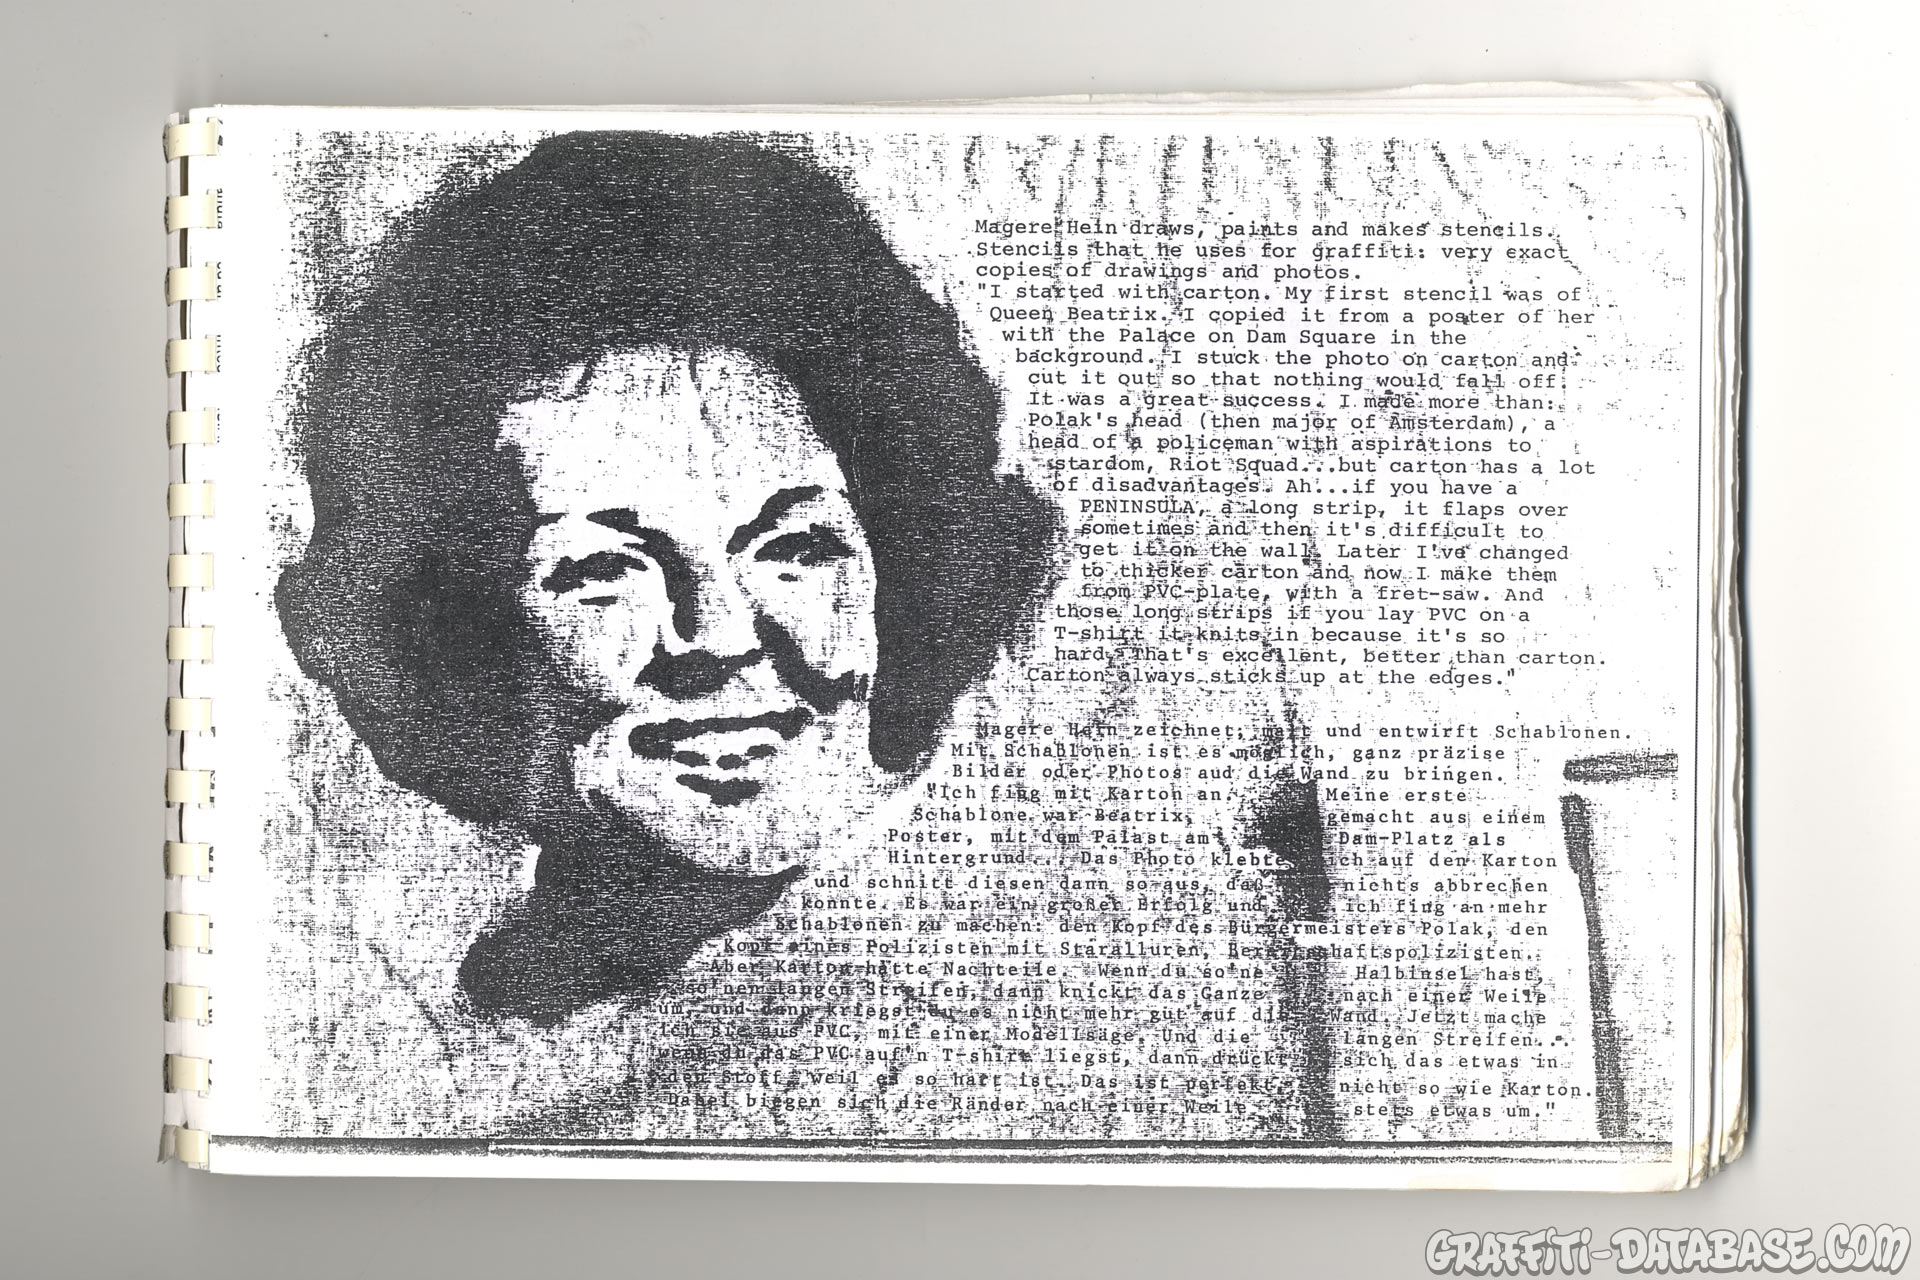 Magere Hein draws, paints and makes stencils.
Stencils that he uses for graffiti: very exact
copies of drawings and photos.
"I started with carton. My first stencil was of
Queen Beatrix. I copied it from a poster of her
with the Palace on Dam Square in the
background. I stuck the photo on carton and
cut it out so that nothing would fall off.
It was a great success. I made more than:
Polak's head (then major of Amsterdam), a
head of a policeman with aspirations to
stardom, Riot Squad...but carton has a lot
of disadvantages. Ah...if you have a
PENINSULA, a long strip, it flaps over
sometimes and then it's difficult to
get it on the wall. Later I've changed
to thicker carton and now I make them
from PVC-plate, with a fret-saw. And
those long strips if you lay PVC on a
T-shirt it knits in because it's so
hard. That's excellent, better than carton.
Carton always sticks up at the edges."
Magere Hein zeichnet, malt und entwirft Schablonen.
Mit Schablonen ist es möglich, ganz präzise
Bilder oder Photos aud die Wand zu bringen.
"Ich fing mit Karton an. Meine erste
Schablone war Beatrix, gemacht aus einem
Poster, mit dem Palast am Dam-Platz als
Hintergrund... Das Photo klebte ich auf den Karton
und schnitt diesen dann so aus, daß nichts abbrechen
konnte. Es war ein großer Erfolg und ich fing an mehr
Schablonen zu machen: den Kopf des Bürgermeisters Polak, den
Kopf eines Polizisten mit Staralluren, Bereitschaftspolizisten.
Aber Karton hatte Nachteile. Wenn du so'ne Halbinsel hast,
so'nem langen Streifen, dann knickt das Ganze nach einer Weile
um, und dann kriegst du es nicht mehr gut auf die Wand. Jetzt mache
ich sie aus PVC, mit einer Modellsäge. Und die langen Streifen...
wenn du das PVC auf'n T-shirt liegst, dann drückt sich das etwas in
den Stoff, weil es so hart ist. Das ist perfekt, nicht so wie Karton.
Dabei biegen sich die Ränder nach einer Weile stets etwas um."
GRAFFITI-DATABASE.COM